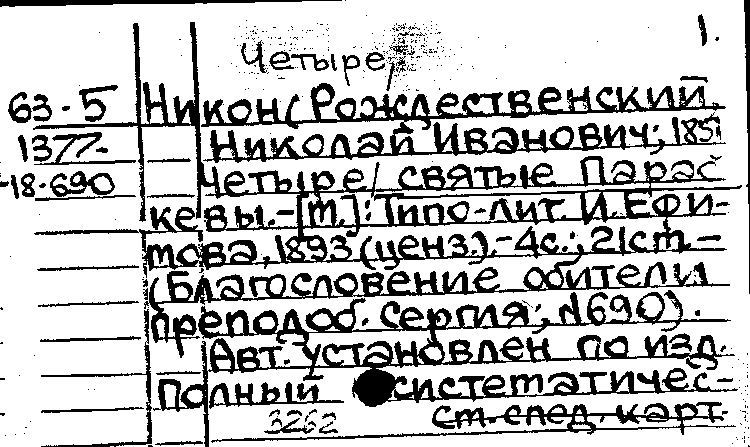 1.
Четыре
63-5 Никон (Рождественский,
1377- Николай Иванович; 185
18-690 Четыре святые Парас
кевы.-[М.]: Типо-лит. И. Ефи-
мова, 1893 (ценз.).-4с.; 21см.-
(Благословение обители
преподоб. Сергия; №690).
Авт. установлен по изд.
Полный систематичес-
3262 см. след. карт.